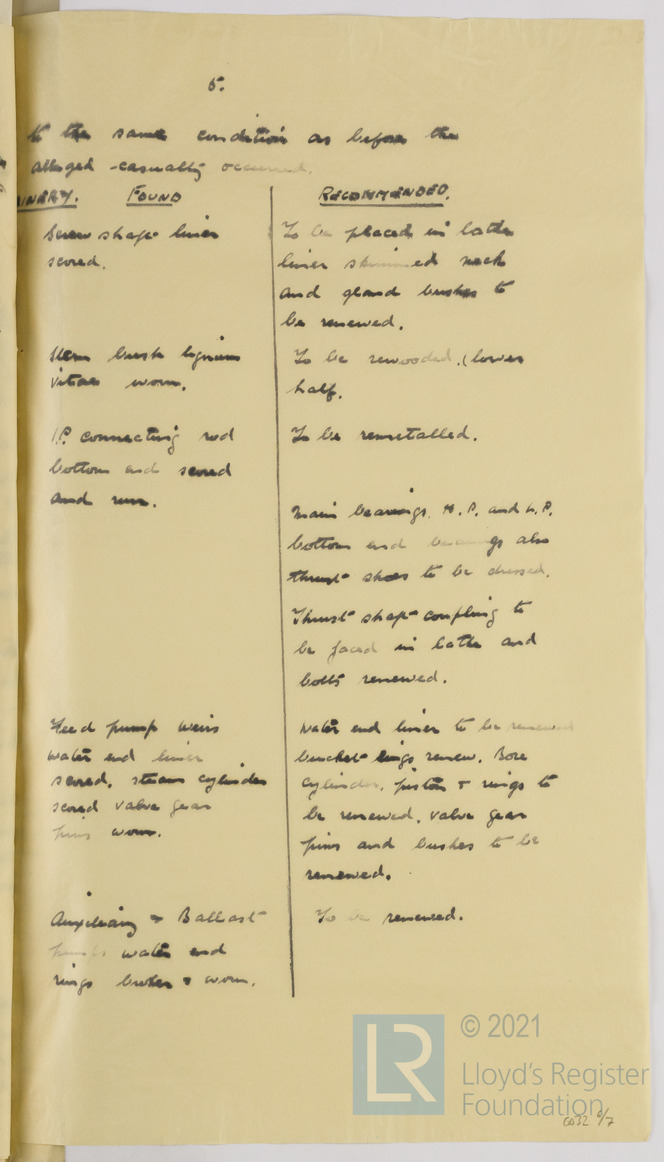 5.
to the same condition as before the
alleged casualty occurred.
INERY. FOUND
RECOMMENDED.
Screw shaft liner
scored.
To be placed in lathe
liner skimmed neck
and gland bushes to
be renewed.
Stern bush lignum
vitae worn.
To be rewooded. (lower
half.
I.P. connecting rod
bottom end scored
and run.
To be remetalled.
Main bearings, H.P. and L.P.
bottom end bearings also
thrust shoes to be dressed.
Thrust shaft coupling to
be faced in lathe and
bolts renewed.
Feed pump weirs
water end liner
scored, steam cylinder
scored valve gear
pins worn.
Water end liner to be renewed
bucket rings renew. Bore
cylinder, piston & rings to
be renewed, valve gear
pins and bushes to be
renewed.
Auxiliary & Ballast
pumps water end
rings broken & worn.
To be renewed.
LR
© 2021
Lloyd's Register
Foundation
6/7